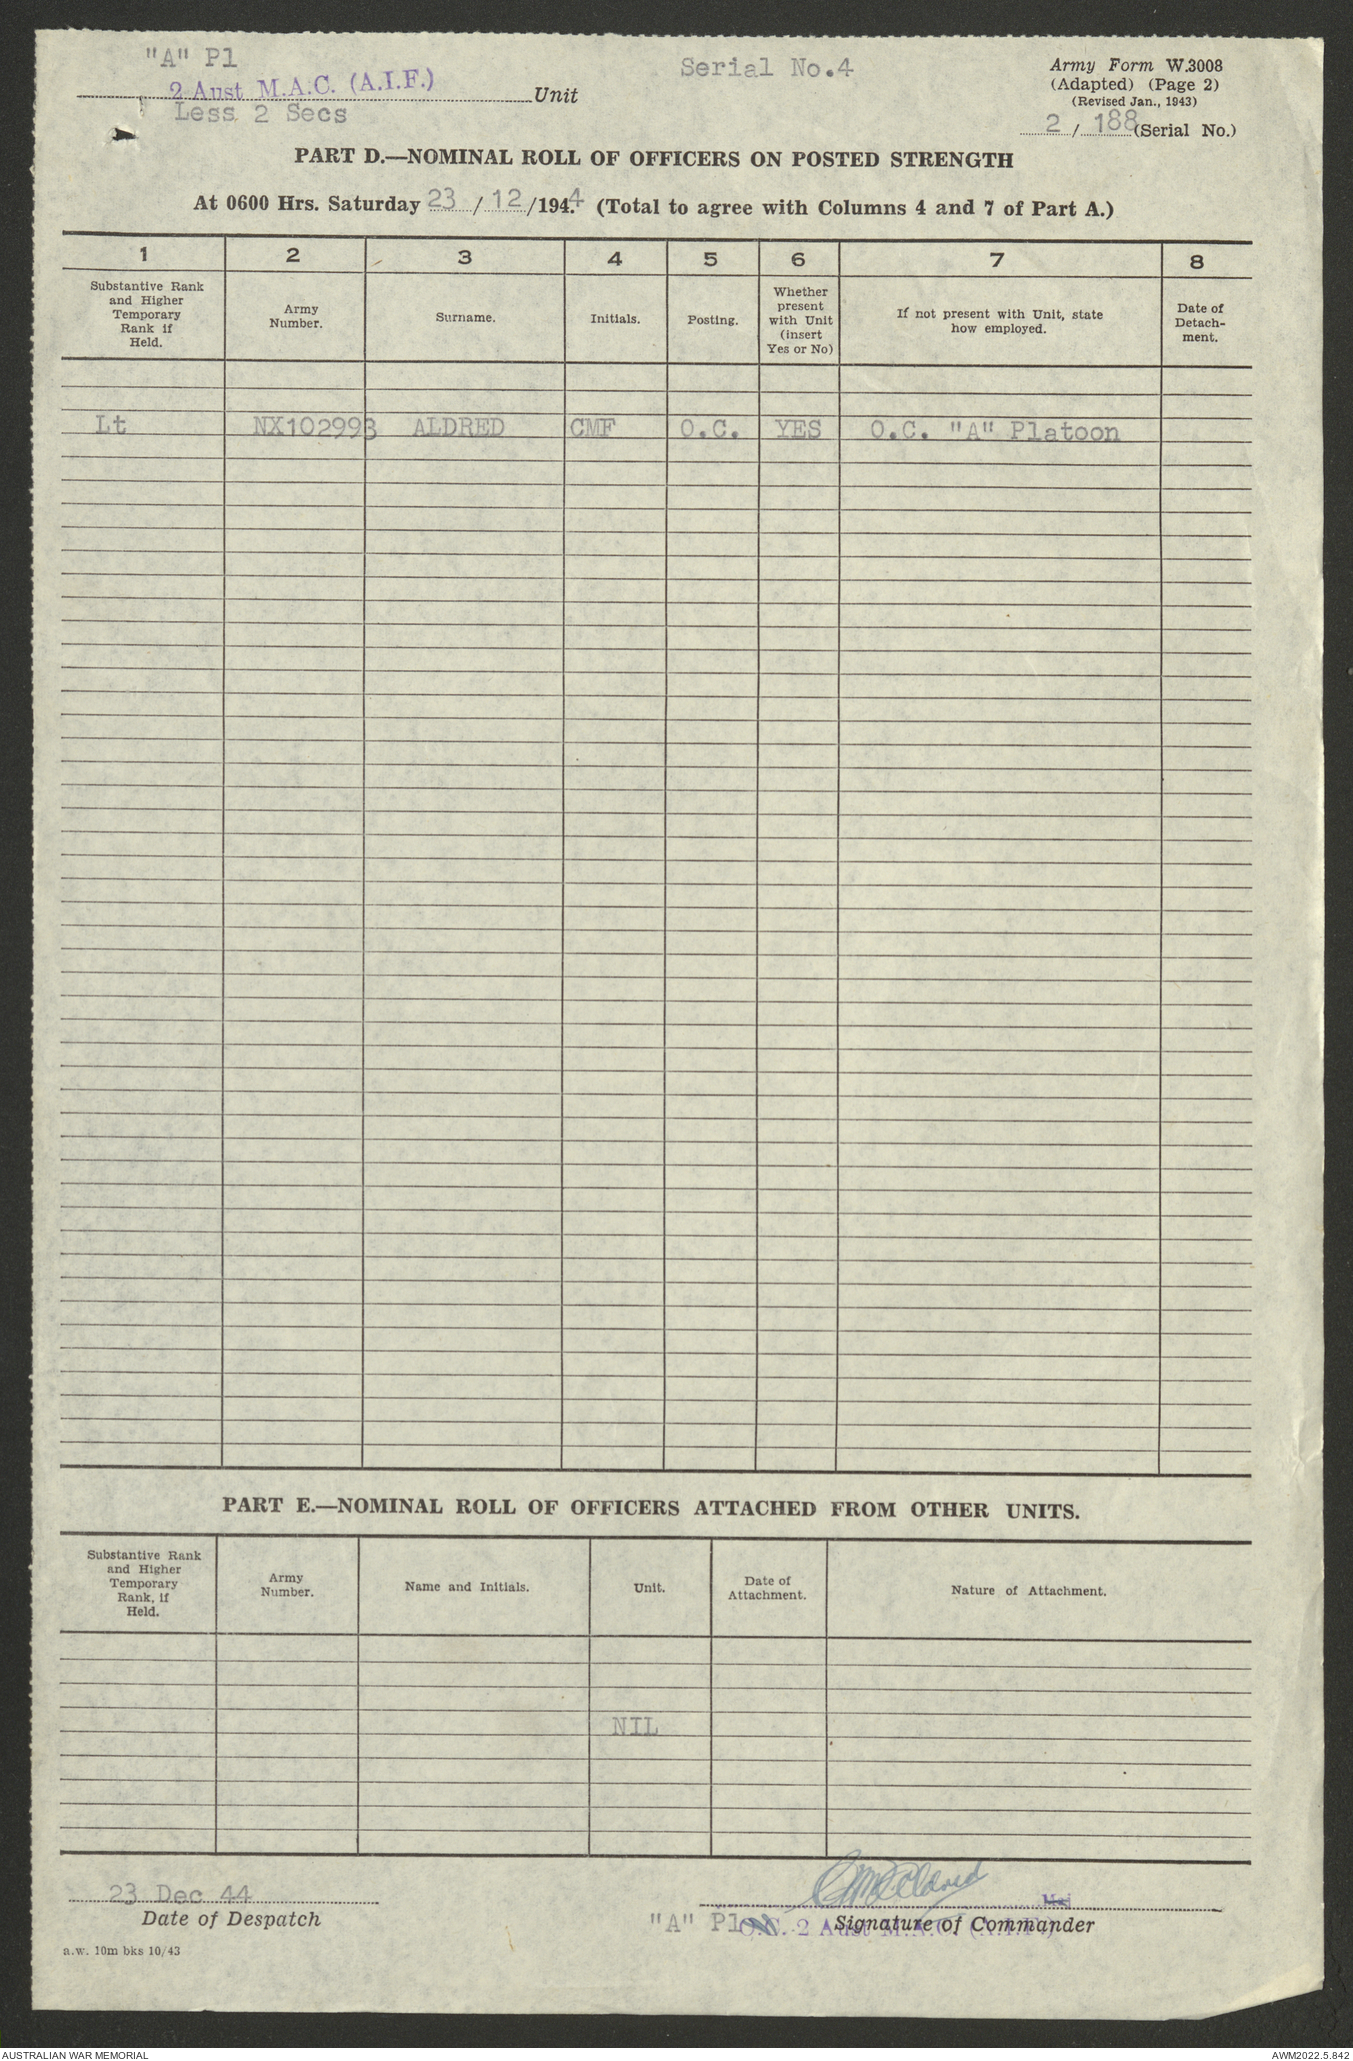 "A" Pl
2 Aust M.A.C. (A.I.F.) Unit
Less 2 Secs
Serial No.4
Army Form W.3008
(Adapted) (Page 2)
(Revised Jan., 1943)
2 / 188 (Serial No.)
PART D.—NOMINAL ROLL OF OFFICERS ON POSTED STRENGTH
At 0600 Hrs. Saturday 23 / 12 /1944 (Total to agree with Columns 4 and 7 of Part A.)
1 2 3 4 5 6 7 8
Substantive Rank
and Higher
Temporary
Rank if
Held.
Army
Number.
Surname.
Initials.
Posting.
Whether
present
with Unit
(insert
Yes or No)
If not present with Unit, state
how employed.
Date of
Detach-
ment.
Lt NX102993 ALDRED CMF O.C. YES O.C. "A" Platoon
PART E.—NOMINAL ROLL OF OFFICERS ATTACHED FROM OTHER UNITS.
Substantive Rank
and Higher
Temporary
Rank, if
Held.
Army
Number.
Name and Initials.
Unit.
Date of
Attachment.
Nature of Attachment.
NIL
23 Dec 44
Date of Despatch
CMF Aldred
Maj
"A" Pl O.C. 2 Aust M.A.C. (A.I.F.)
Signature of Commander
a.w. 10m bks 10/43
AUSTRALIAN WAR MEMORIAL
AWM2022.5.842